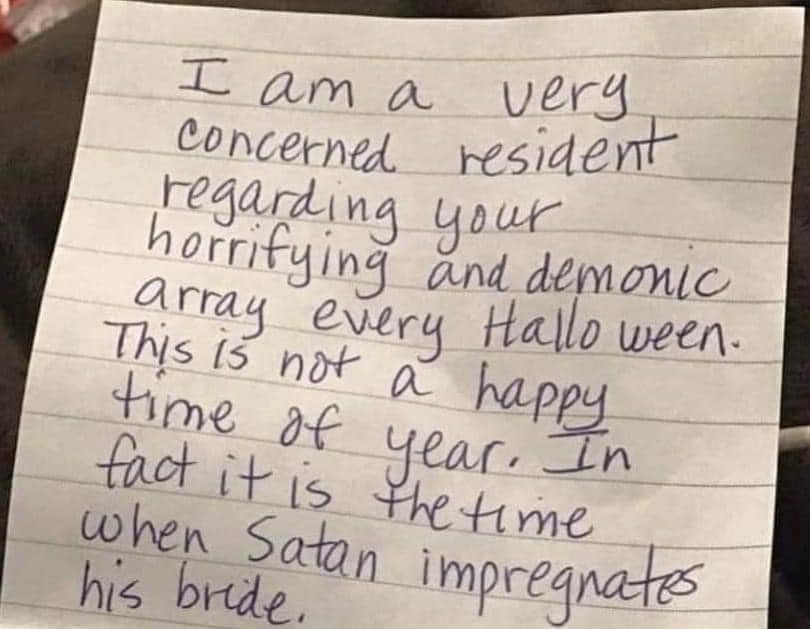 I am a very
concerned resident
regarding your
horrifying and demonic
array every Halloween.
This is not a happy
time of year. In
fact it is the time
when Satan impregnates
his bride.